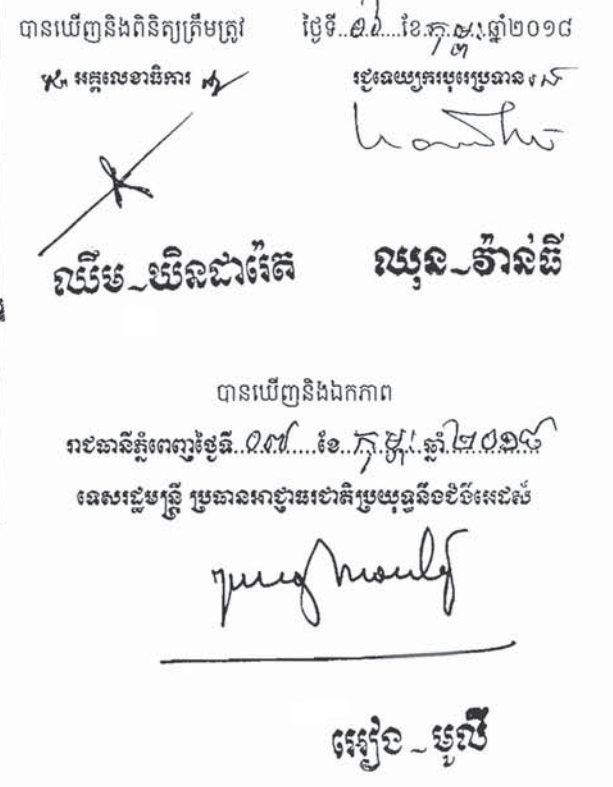 បានឃើញនិងពិនិត្យត្រឹមត្រូវ
អគ្គលេខាធិការ
ឈឹម-ឃិនដារ៉េត
ថ្ងៃទី.....ខែ.កុម្ភៈ.ឆ្នាំ២០១៨
រជ្ជទេយ្យករបុរេប្រទាន
ឈុន-វ៉ាន់ធី
បានឃើញនិងឯកភាព
រាជធានីភ្នំពេញថ្ងៃទី.០៧.....ខែ.កុម្ភៈ.ឆ្នាំ.២០១៨
ទេសរដ្ឋមន្ត្រី ប្រធានអាជ្ញាធរជាតិប្រយុទ្ធនឹងជំងឺអេដស៍
អៀង-មូលី